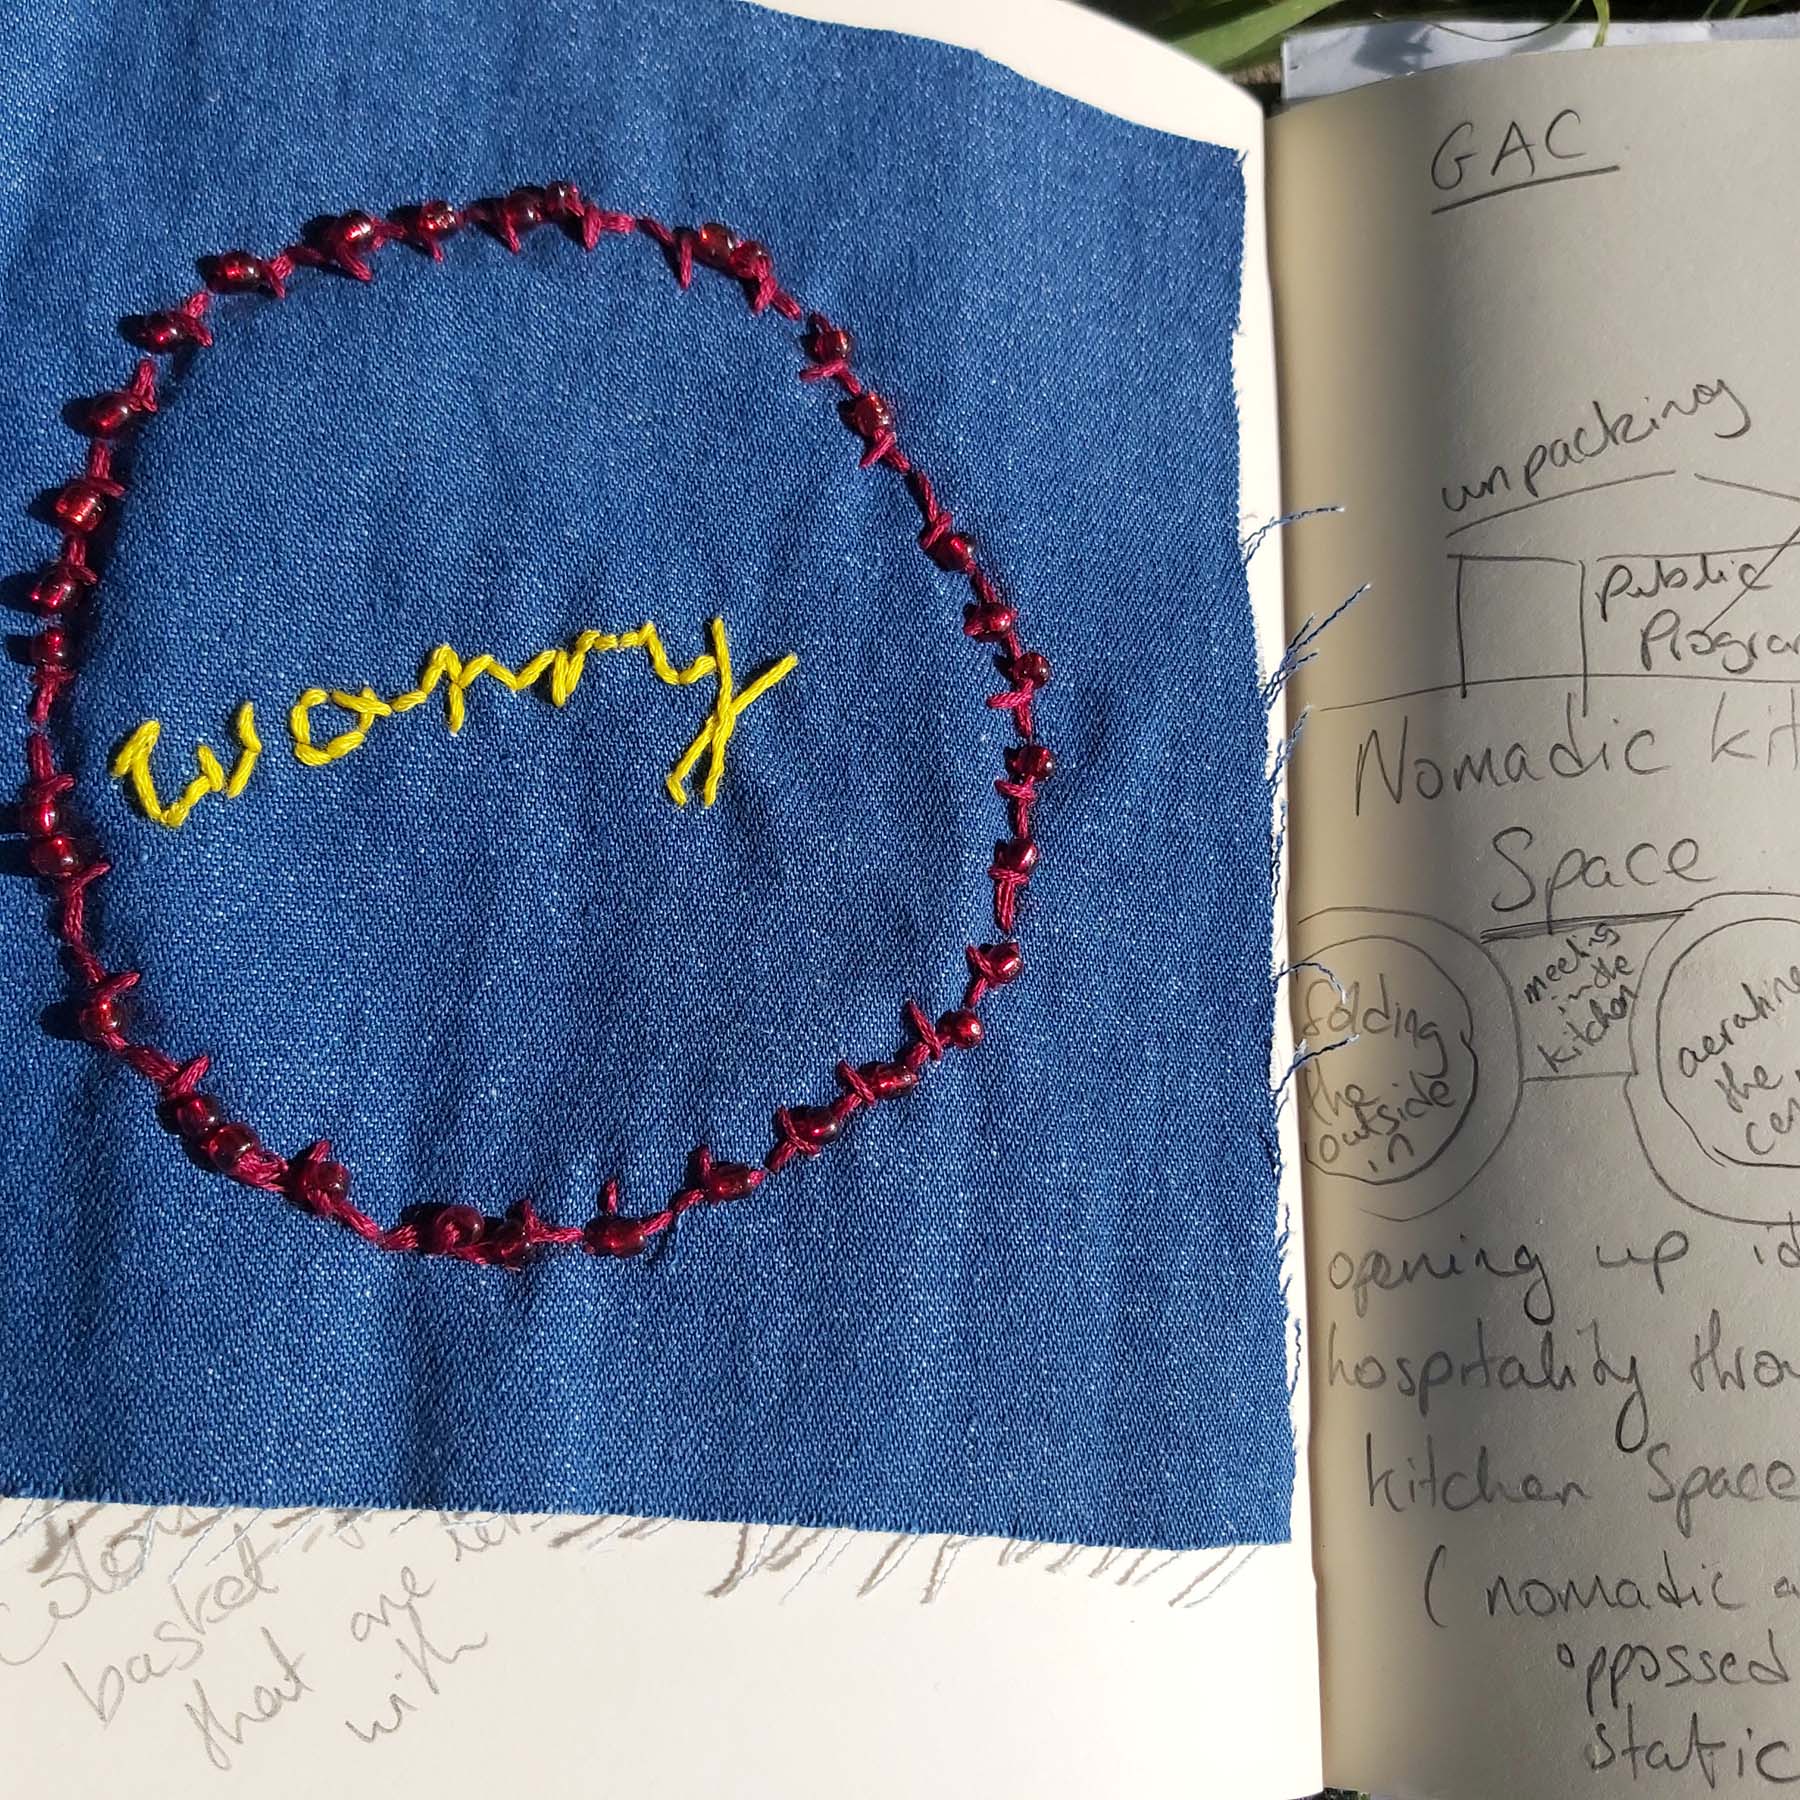 worry
basket
that are
with
GAC
unpacking
Public
Program
Nomadic kit
Space
meeting
in the
kitchen
folding
the
outside
in
aerating
the
cen
opening up id
hospitality throu
kitchen Space
( nomadic a
oppossed
static